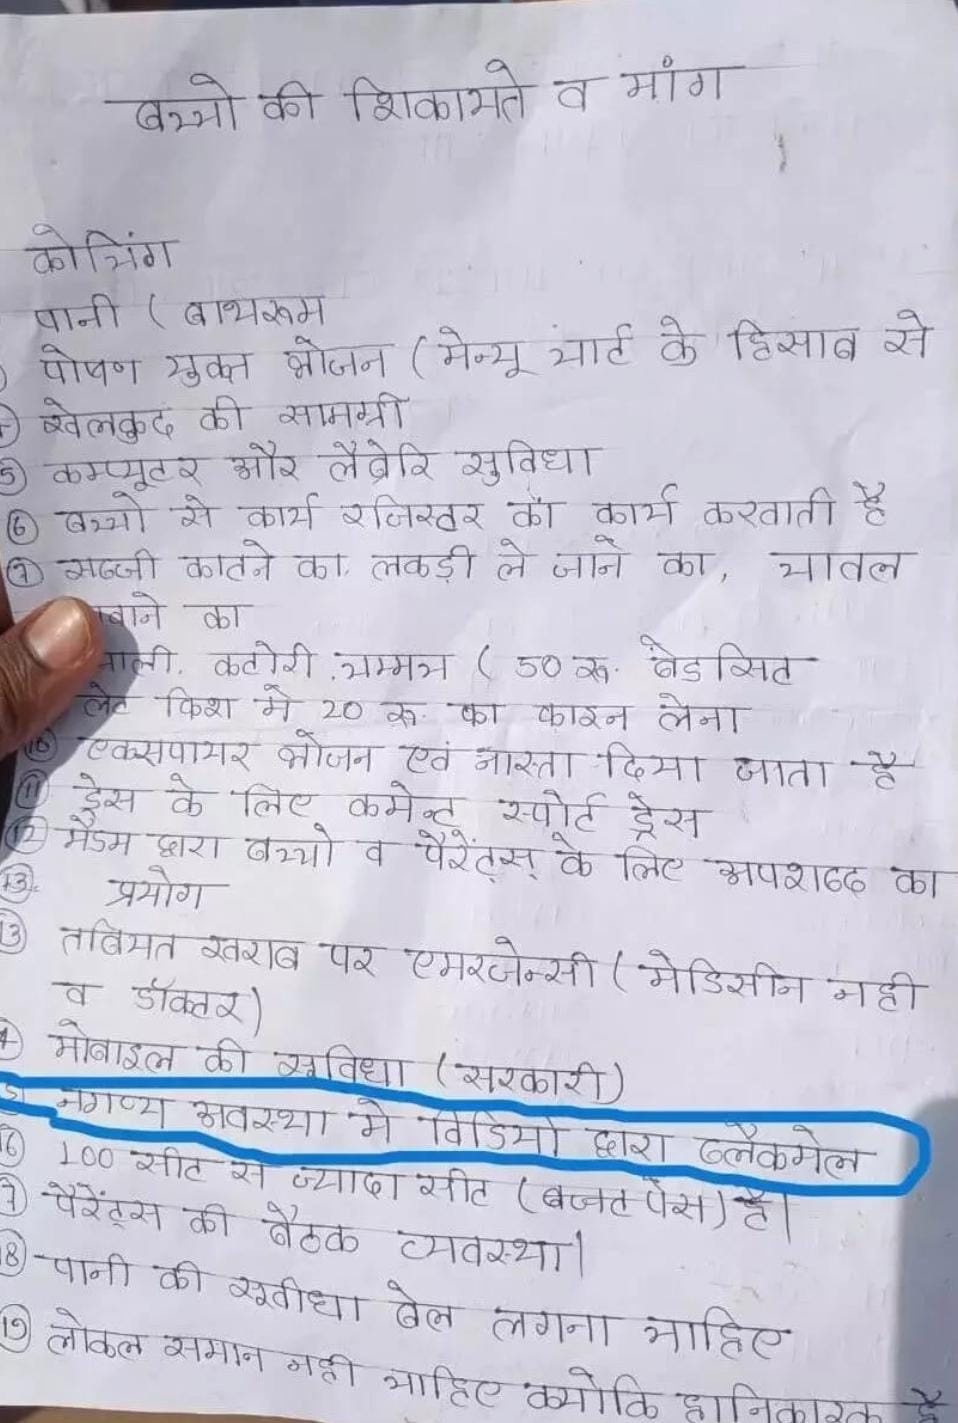 बच्चो की शिकायते व मांग
कोचिंग
पानी ( बाथरूम
पोषण युक्त भोजन ( मेन्यू चार्ट के हिसाब से
खेलकुद की सामग्री
5 कम्प्यूटर और लैब्रेरि सुविधा
6 बच्चो से कार्य रजिस्टर का कार्य करवाती है
7 सब्जी काटने का, लकड़ी ले जाने का, चावल
का
कटोरी, चम्मच ( 50 रू. बेडसित
में 20 रू. का फाइन लेना
10 एक्सपायर भोजन एवं नास्ता दिया जाता है
11 ड्रेस के लिए कमेन्ट स्पोर्ट ड्रेस
12 मैडम द्वारा बच्चो व पैरेंट्स् के लिए अपशब्द का
13. प्रयोग
13 तबियत खराब पर एमरजेन्सी ( मेडिसीन नही
व डॉक्टर)
4 मोबाइल की सुविधा (सरकारी)
5 नगण्य अवस्था मे विडियो द्वारा ब्लैकमेल
16 100 सीट से ज्यादा सीट (बजट पेस) है।
7 पैरेंट्स की बैठक व्यवस्था।
18 पानी की सूवीधा बेल लगना चाहिए
19 लोकल समान नही चाहिए क्योकि हानिकारक है